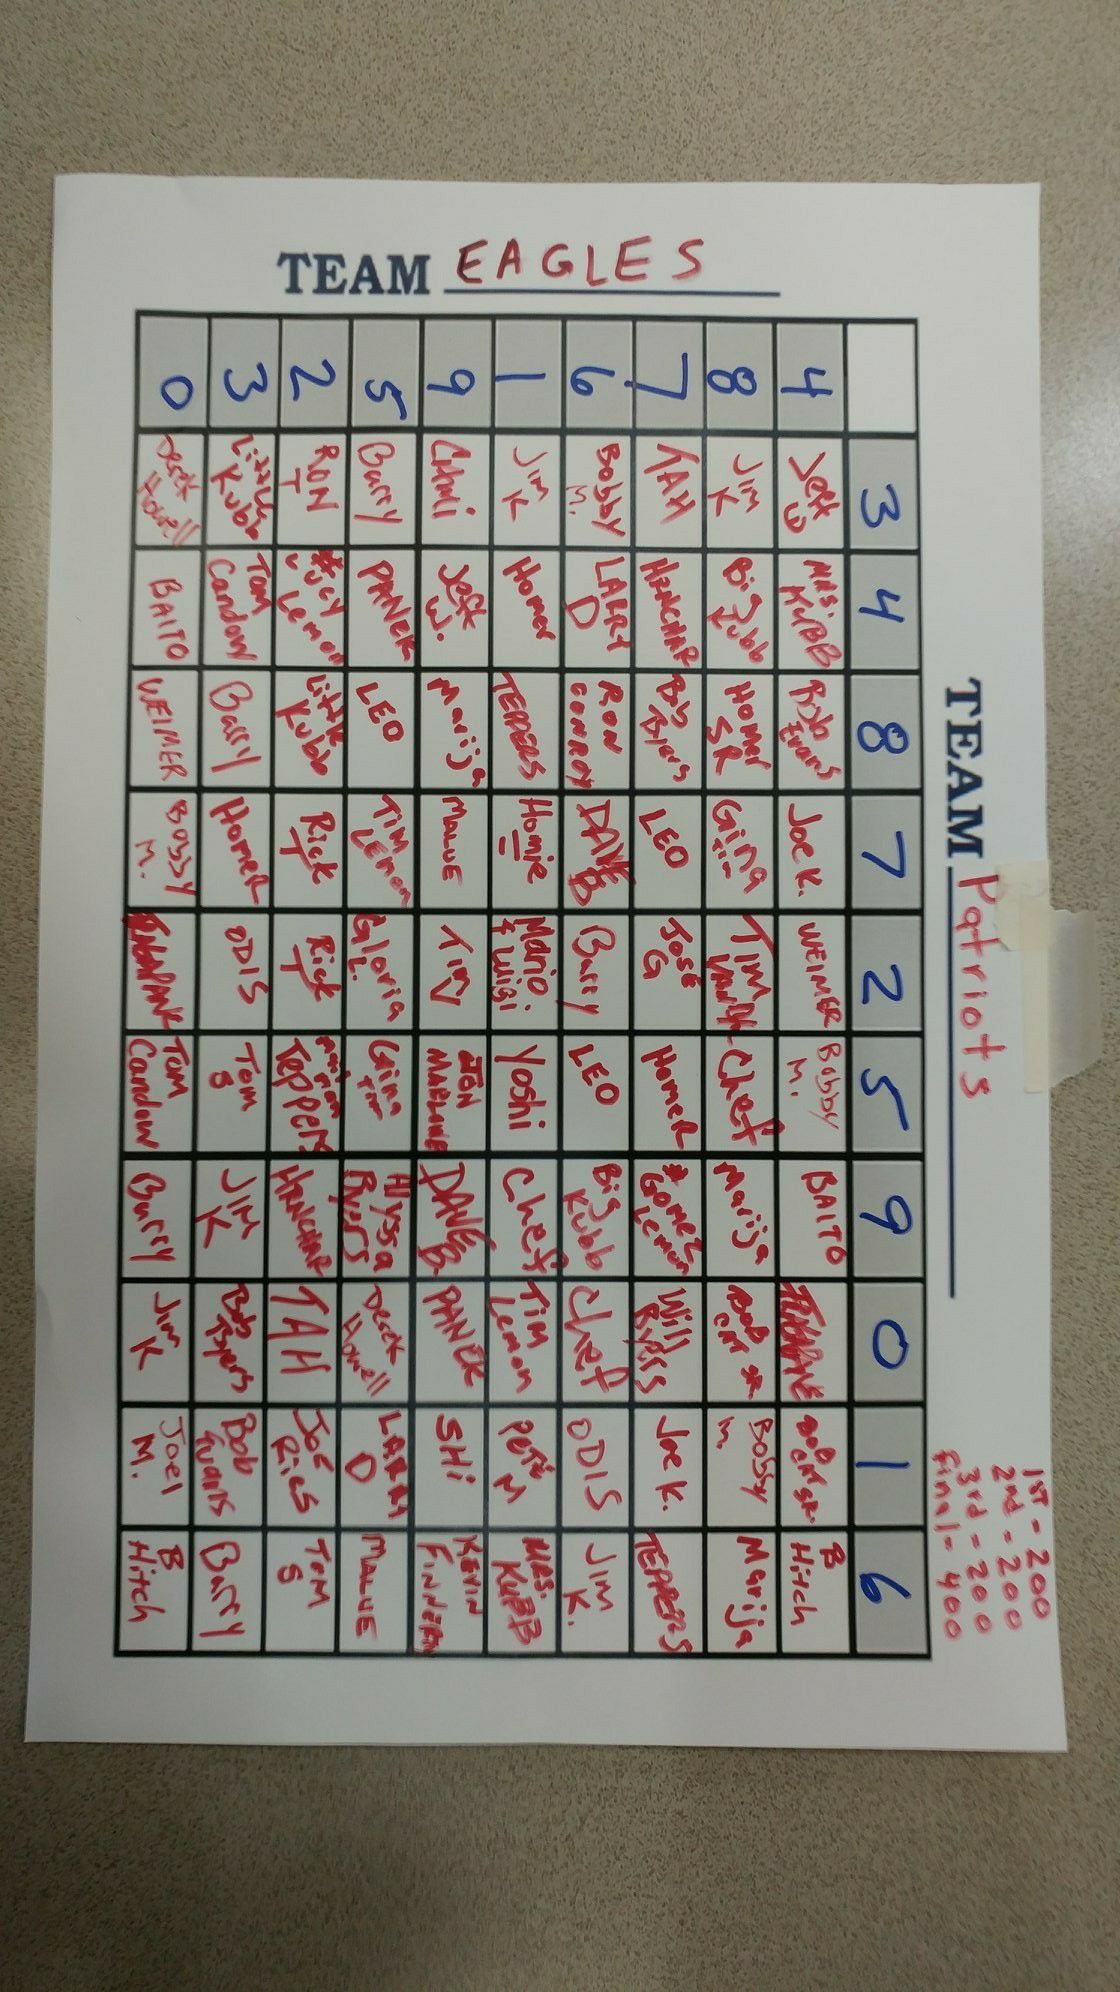 TEAM EAGLES
TEAM Patriots
0 3 2 5 9 1 6 7 8 4
Derek Howell Little Kubb RON T Barry CHMi Jim K Bobby M. TAH Jim K Jeff W 3
BAITO Tom Candow Lemon PANEK Jeff W. Homer LARRY D HENCHAR Big Kubb MRS. KUBB 4
WEIMER Barry Little Kubb LEO Marija TEPPERS RON CONROY Bob Byers Homer SR Bob Evans 8
Bobby M. Homer Rick T Tim Lemon MALUE Homie DAVE B LEO Gina Tim Joe K. 7
ODIS Rick T Gloria L. Tim V Mario & Luigi Barry JOSE G TIM WEIMER 2
TOM Candow Tom S Teppers Gina Tim JON MARLOWE Yoshi LEO Homer Chef Bobby M. 5
Barry JIM K HENCHAR Alyssa Byers DAVE B. Chef Big Kubb Gomez Lemon Marija BAITO 9
Jim K Bob Byers TAH Derek Howell PANEK Tim Lemon Chef Will Byers BOB CAT SR. 0
Joel M. Bob Evans Joe Ries LARRY D SHi PETE M ODIS Joe K. Bobby M. BOB CAT SR. 1
B Hitch Barry Tom S MALUE KEVIN FINNERAN MRS. KUBB JIM K. TEPPERS Marija B Hitch 6
1ST - 200
2nd - 200
3rd - 200
final - 400